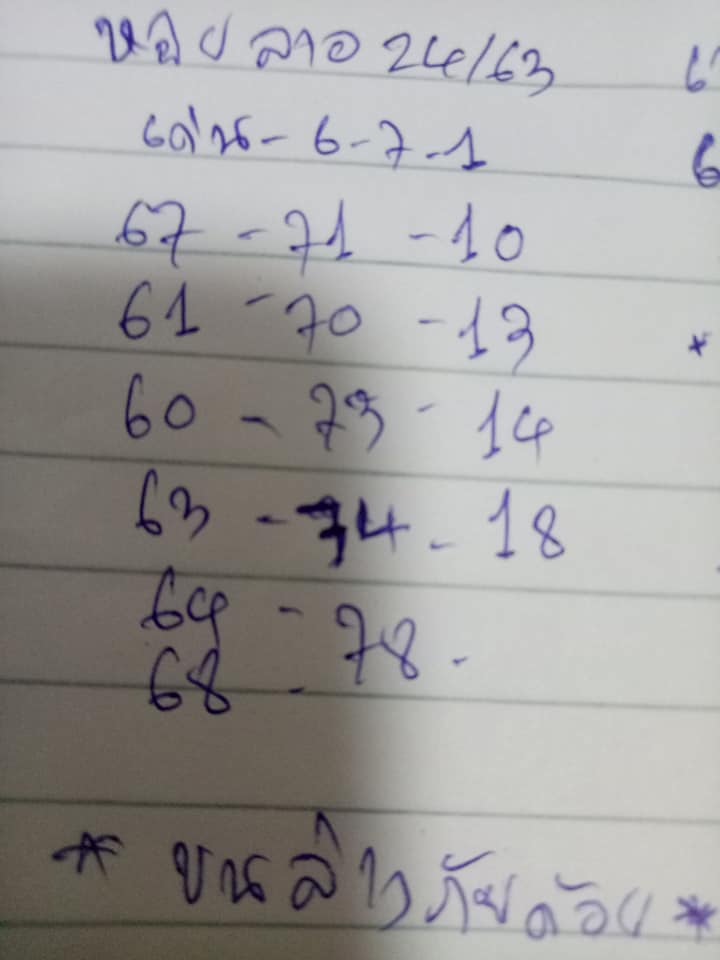 หวย ลาว 24/63
เด่น - 6 - 7 - 1
67 - 71 - 10
61 - 70 - 13
60 - 73 - 14
63 - 74 - 18
64 - 78 -
68 -
* บน ล่าง ด้วย *
6
*